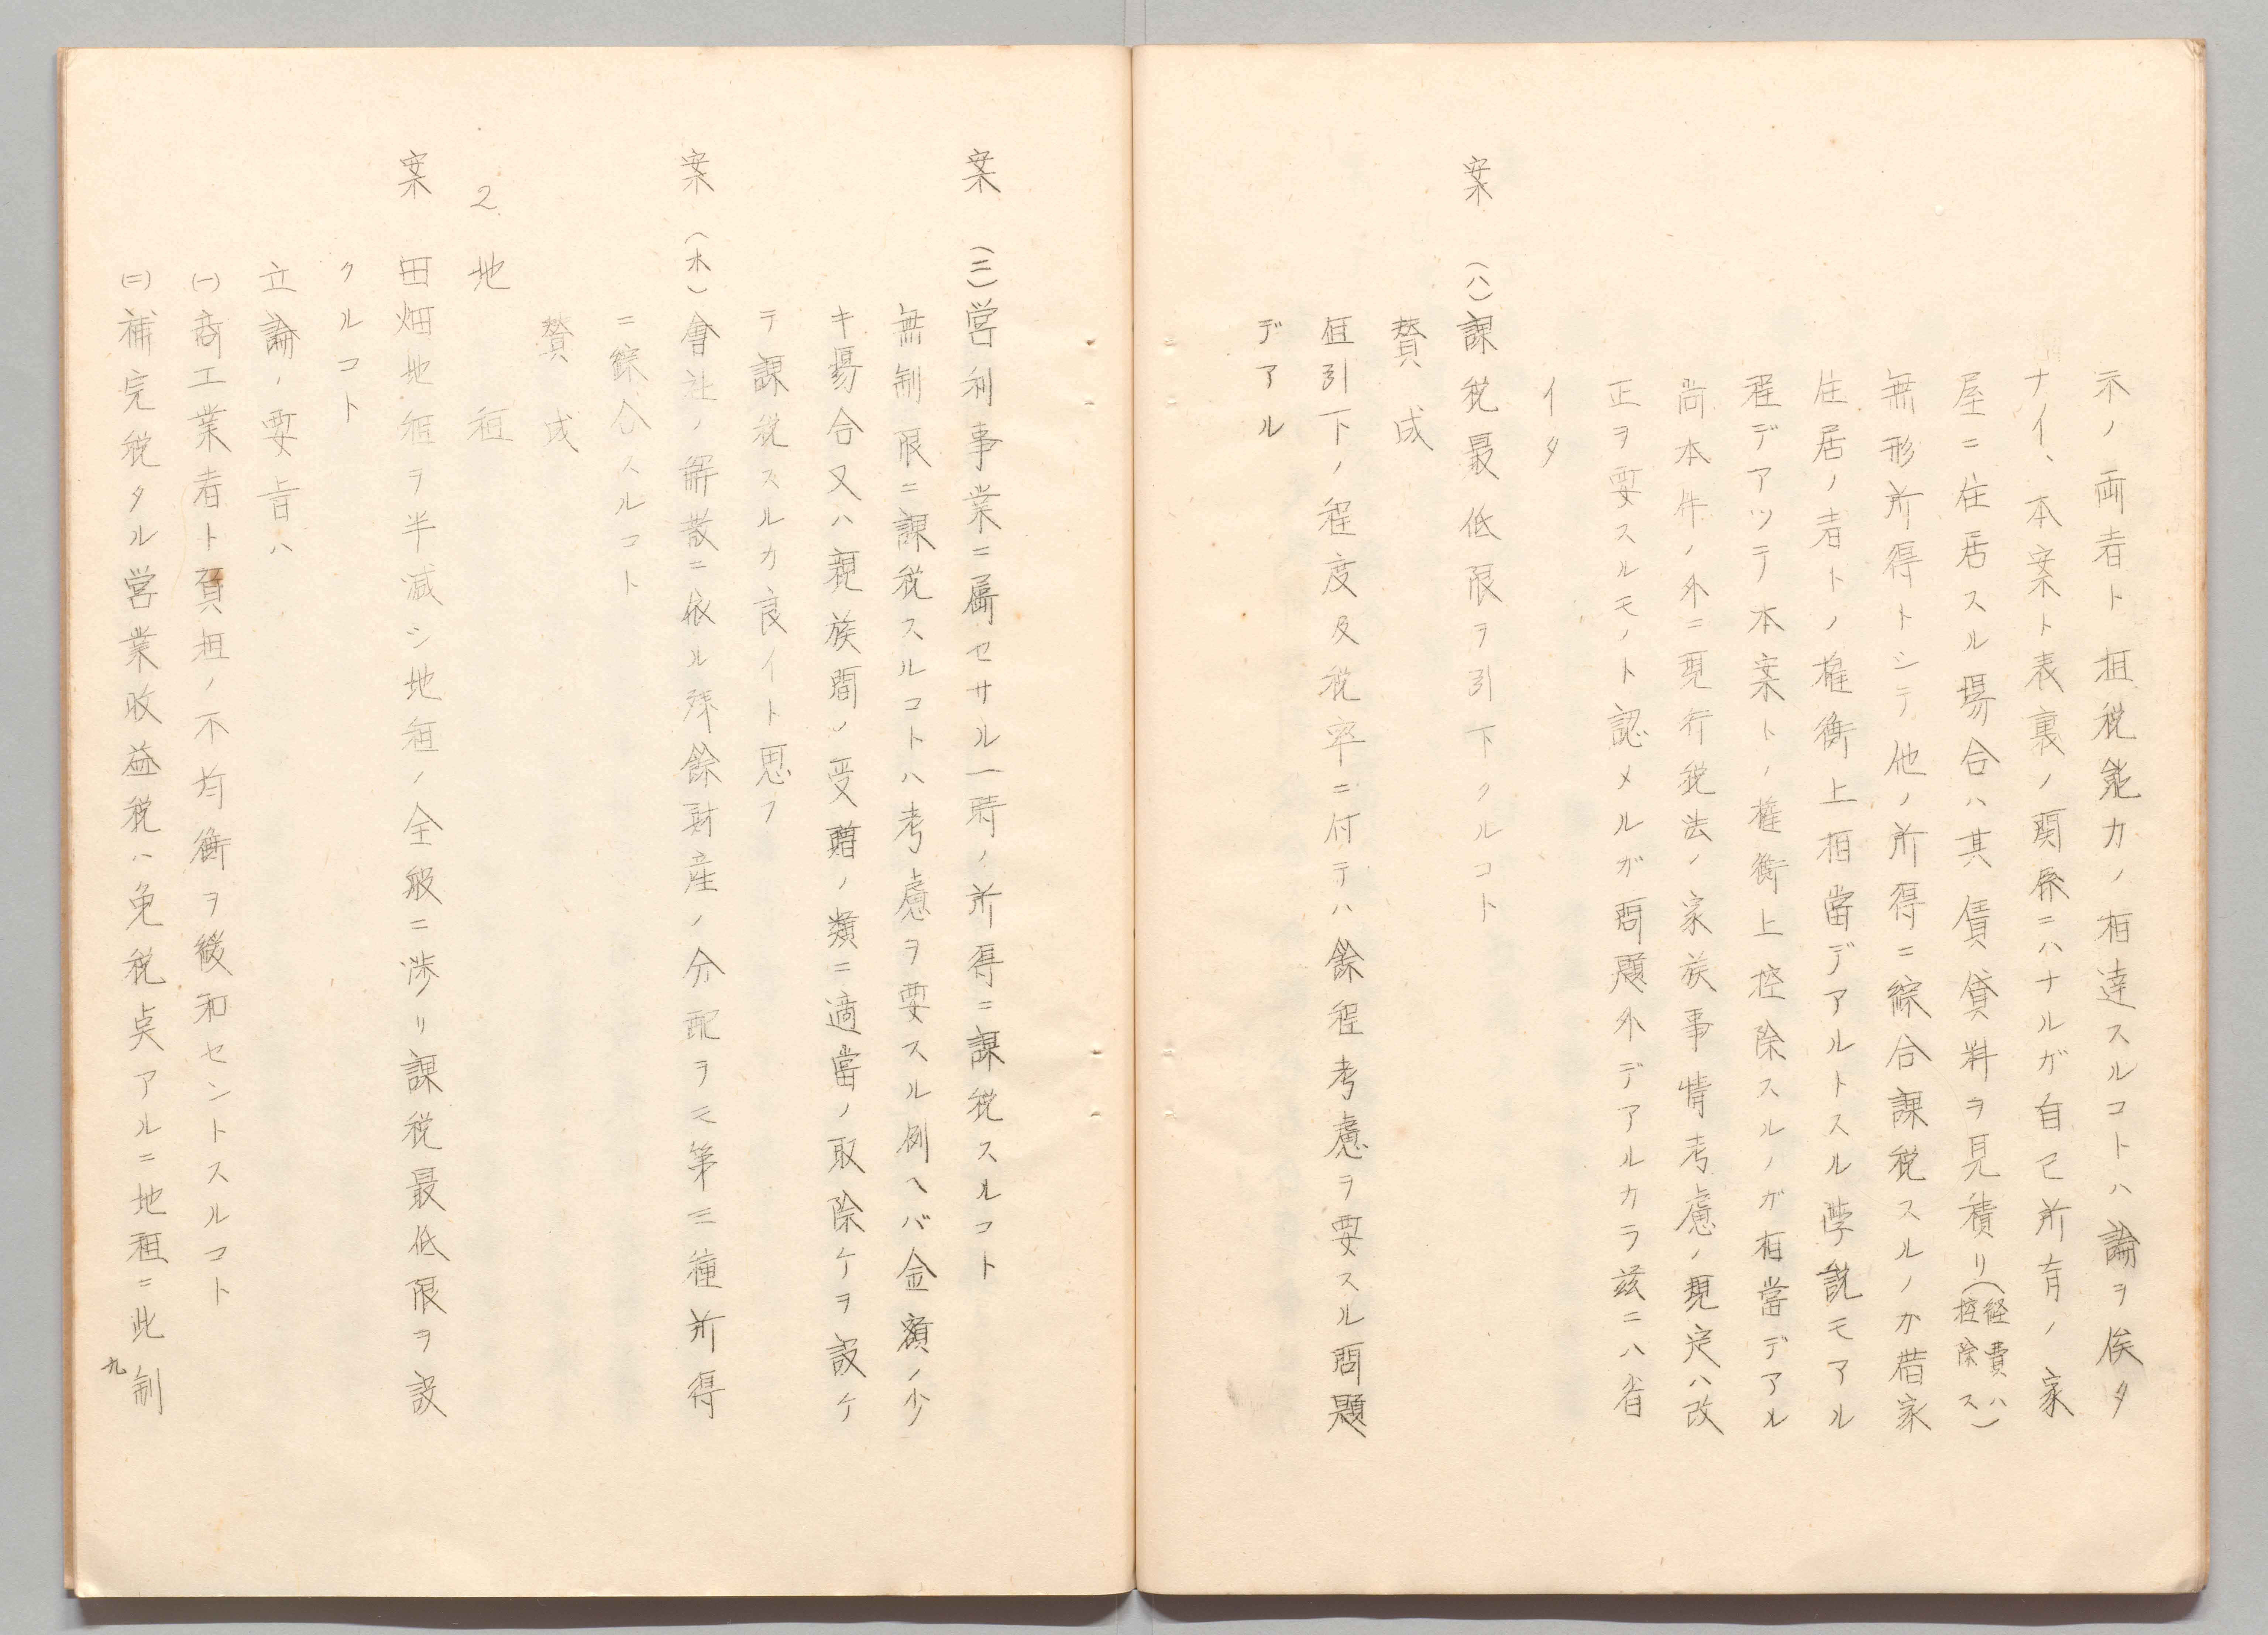 示ノ両者ト担税能力ノ相違スルコトハ論ヲ俟タ
ナイ、本案ト表裏ノ関係ニハナルガ自己所有ノ家
屋ニ住居スル場合ハ其賃貸料ヲ見積リ(経費ハ控除ス)
無形所得トシテ他ノ所得ニ綜合課税スルノカ借家
住居ノ者トノ権衡上相當デアルトスル學説モアル
程デアツテ本案トノ権衡上控除スルノガ相當デアル
尚本件ノ外ニ現行税法ノ家族事情考慮ノ規定ハ改
正ヲ要スルモノト認メルガ問題外デアルカラ茲ニハ省
イタ
案 (ハ)課税最低限ヲ引下クルコト
賛成
但引下ノ程度及税率ニ付テハ餘程考慮ヲ要スル問題
デアル
案 (ニ)営利事業ニ属セサル一時ノ所得ニ課税スルコト
無制限ニ課税スルコトハ考慮ヲ要スル例ヘバ金額ノ少
キ場合又ハ親族間ノ受贈ノ類ニ適當ノ取除ケヲ設ケ
テ課税スルカ良イト思フ
案 (ホ)會社ノ解散ニ依ル残餘財産ノ分配ヲモ第三種所得
ニ綜合スルコト
賛成
2. 地租
案 田畑地租ヲ半減シ地租ノ全般ニ渉リ課税最低限ヲ設
クルコト
立論ノ要旨ハ
(一)商工業者ト負担ノ不均衡ヲ緩和セントスルコト
(二)補完税タル営業收益税ハ免税点アルニ地租ニ此制
九